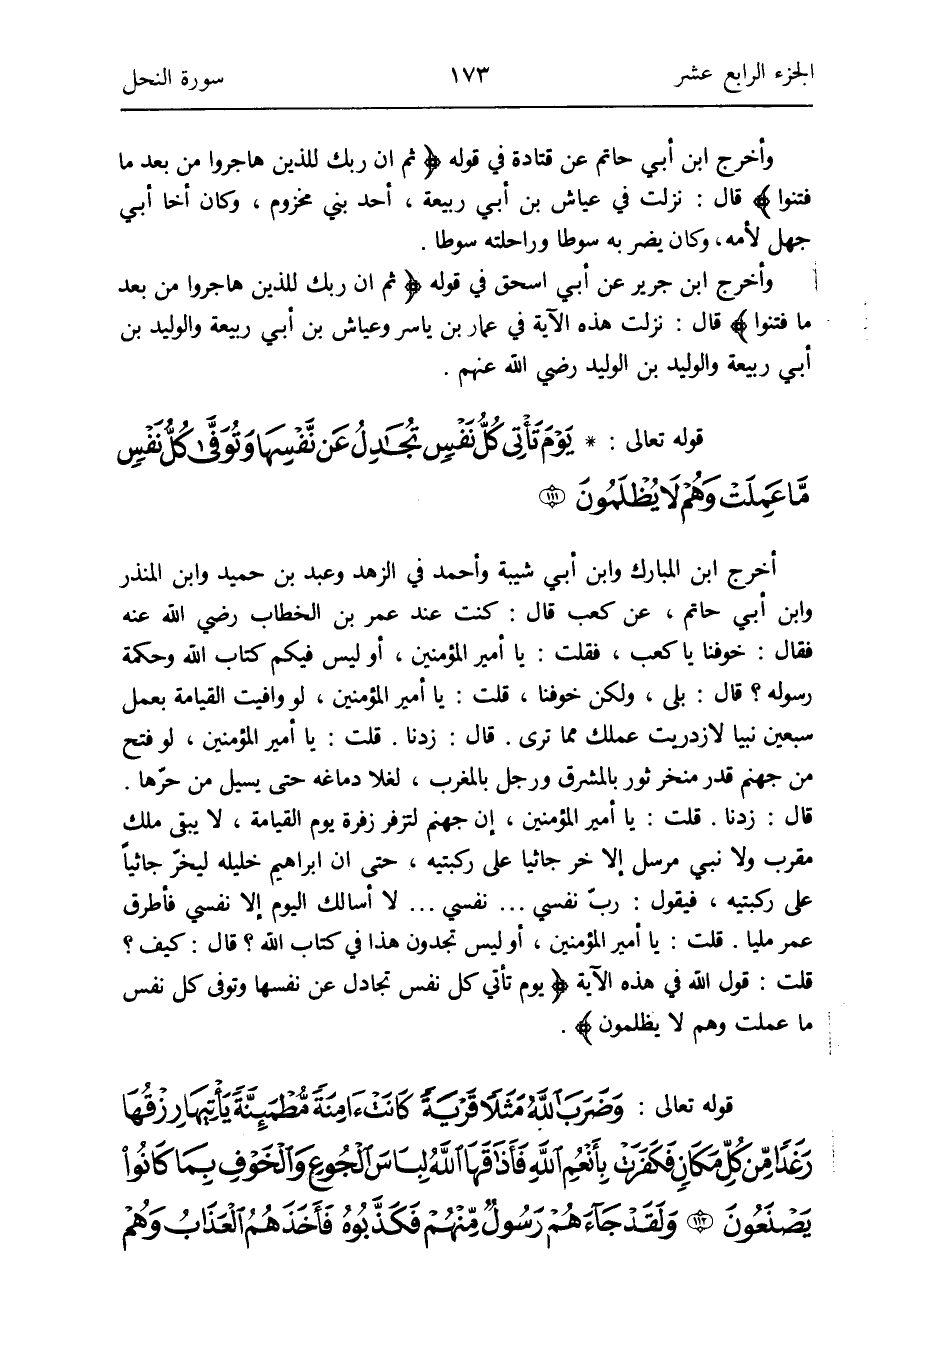 الجزء الرابع عشر ١٧٣ سورة النحل
وأخرج ابن أبي حاتم عن قتادة في قوله ﴿ ثم ان ربك للذين هاجروا من بعد ما
فتنوا ﴾ قال : نزلت في عياش بن أبي ربيعة ، أحد بني مخزوم ، وكان أخا أبي
جهل لأمه، وكان يضر به سوطا وراحلته سوطا .
وأخرج ابن جرير عن أبي اسحق في قوله ﴿ ثم ان ربك للذين هاجروا من بعد
ما فتنوا ﴾ قال : نزلت هذه الآية في عمار بن ياسر وعياش بن أبي ربيعة والوليد بن
أبي ربيعة والوليد بن الوليد رضي الله عنهم .
قوله تعالى : * يَوْمَ تَأْتِى كُلُّ نَفْسٍ تُجَـٰدِلُ عَن نَّفْسِهَا وَتُوَفَّىٰ كُلُّ نَفْسٍ
مَّا عَمِلَتْ وَهُمْ لَا يُظْلَمُونَ ﴿١١١﴾
أخرج ابن المبارك وابن أبي شيبة وأحمد في الزهد وعبد بن حميد وابن المنذر
وابن أبي حاتم ، عن كعب قال : كنت عند عمر بن الخطاب رضي الله عنه
فقال : خوفنا يا كعب ، فقلت : يا أمير المؤمنين ، أو ليس فيكم كتاب الله وحكمة
رسوله ؟ قال : بلى ، ولكن خوفنا ، قلت : يا أمير المؤمنين ، لو وافيت القيامة بعمل
سبعين نبيا لازدريت عملك مما ترى . قال : زدنا . قلت : يا أمير المؤمنين ، لو فتح
من جهنم قدر منخر ثور بالمشرق ورجل بالمغرب ، لغلا دماغه حتى يسيل من حرّها .
قال : زدنا . قلت : يا أمير المؤمنين ، إن جهنم لتزفر زفرة يوم القيامة ، لا يبقى ملك
مقرب ولا نبي مرسل إلا خر جاثيا على ركبتيه ، حتى ان ابراهيم خليله ليخرّ جاثياً
على ركبتيه ، فيقول : ربّ نفسي ... نفسي ... لا أسالك اليوم إلا نفسي فأطرق
عمر مليا . قلت : يا أمير المؤمنين ، أو ليس تجدون هذا في كتاب الله ؟ قال : كيف ؟
قلت : قول الله في هذه الآية ﴿ يوم تأتي كل نفس تجادل عن نفسها وتوفى كل نفس
ما عملت وهم لا يظلمون ﴾ .
قوله تعالى : وَضَرَبَ ٱللَّهُ مَثَلًا قَرْيَةً كَانَتْ ءَامِنَةً مُّطْمَئِنَّةً يَأْتِيهَا رِزْقُهَا
رَغَدًا مِّن كُلِّ مَكَانٍ فَكَفَرَتْ بِأَنْعُمِ ٱللَّهِ فَأَذَٰقَهَا ٱللَّهُ لِبَاسَ ٱلْجُوعِ وَٱلْخَوْفِ بِمَا كَانُوا۟
يَصْنَعُونَ ﴿١١٢﴾ وَلَقَدْ جَآءَهُمْ رَسُولٌ مِّنْهُمْ فَكَذَّبُوهُ فَأَخَذَهُمُ ٱلْعَذَابُ وَهُمْ